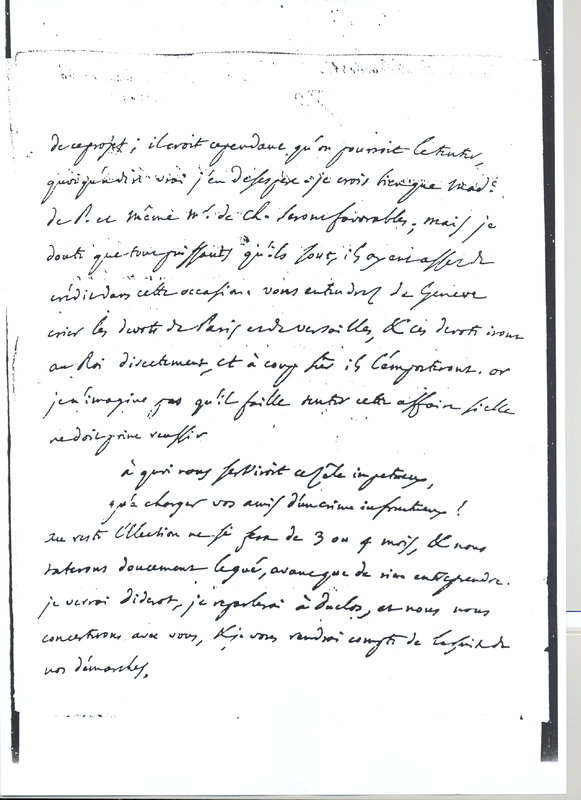 de ce projet; il croit cependant qu'on pourroit le tenter,
quoiqu'à dire vrai j'en desespere. je crois bien que Mad.e
de P. et même Mr. de Ch. seront favorables; mais je
doute que tout puissants qu'ils sont, ils ayent assez de
crédit dans cette occasion. vous entendrez de Geneve
crier les devots de Paris et de Versailles, & ces devots iront
au Roi directement, et à coup sûr ils l'emporteront. or
je n'imagine pas qu'il faille tenter cette affaire si elle
ne doit point reussir
à quoi vous serviroit ce zèle impetueux,
qu'à charger vos amis d'un crime infructueux!
au reste l'Election ne se fera de 3 ou 4 mois, & nous
taterons doucement le gué, avant que de rien entreprendre.
je verrai diderot, je reparlerai à duclos, et nous nous
concerterons avec vous, & je vous rendrai compte de la suite de
nos démarches,